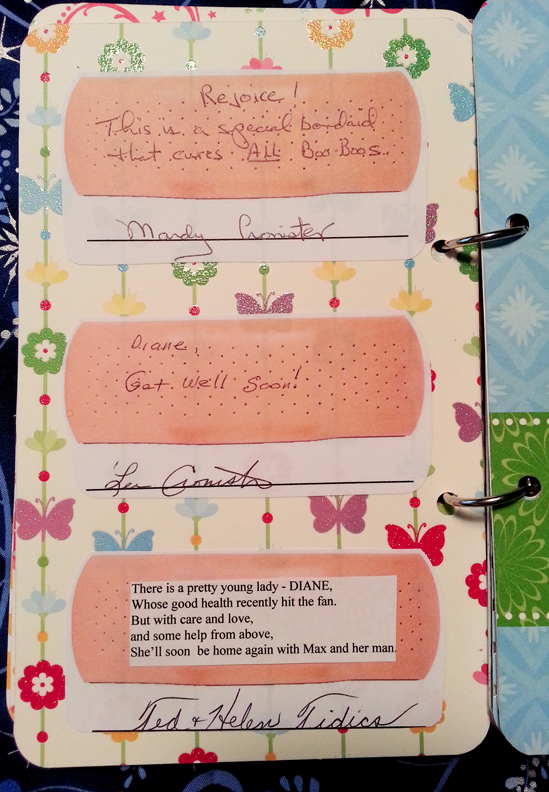 Rejoice!
This is a special bandaid
that cures ALL Boo-Boos.
Mardy Cronister
Diane,
Get Well Soon!
Len Cronister
There is a pretty young lady - DIANE,
Whose good health recently hit the fan.
But with care and love,
and some help from above,
She'll soon be home again with Max and her man.
Ted & Helen Tidics